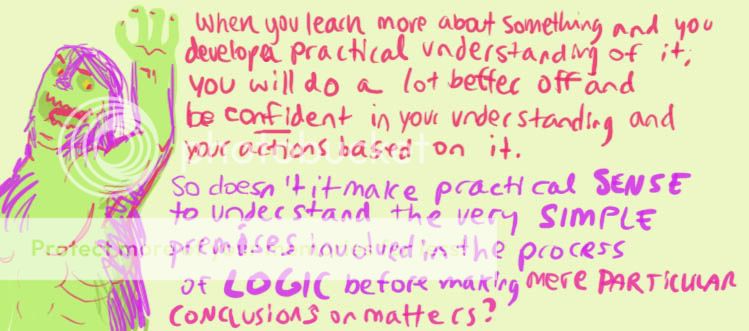 When you learn more about something and you
develop a practical understanding of it,
you will do a lot better off and
be confident in your understanding and
your actions based on it.
So doesn't it make practical SENSE
to understand the very SIMPLE
premises involved in the process
of LOGIC before making MERE PARTICULAR
CONCLUSIONS on matters?
photobucket
Protect more of your memories for less!